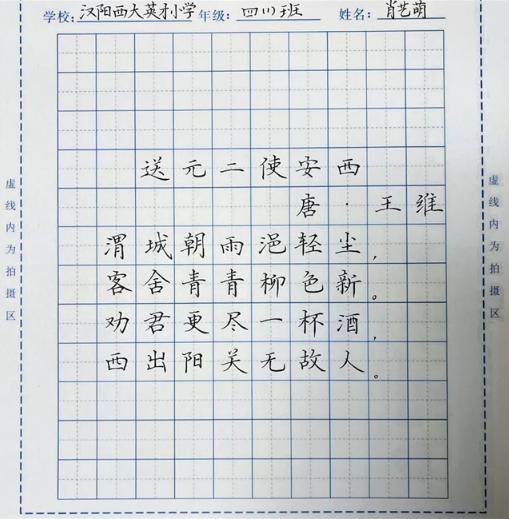 学校:汉阳西大英才小学 年级:四(1)班 姓名:肖艺萌
送元二使安西
唐·王维
渭城朝雨浥轻尘,
客舍青青柳色新。
劝君更尽一杯酒,
西出阳关无故人。
虚线内为拍摄区
虚线内为拍摄区